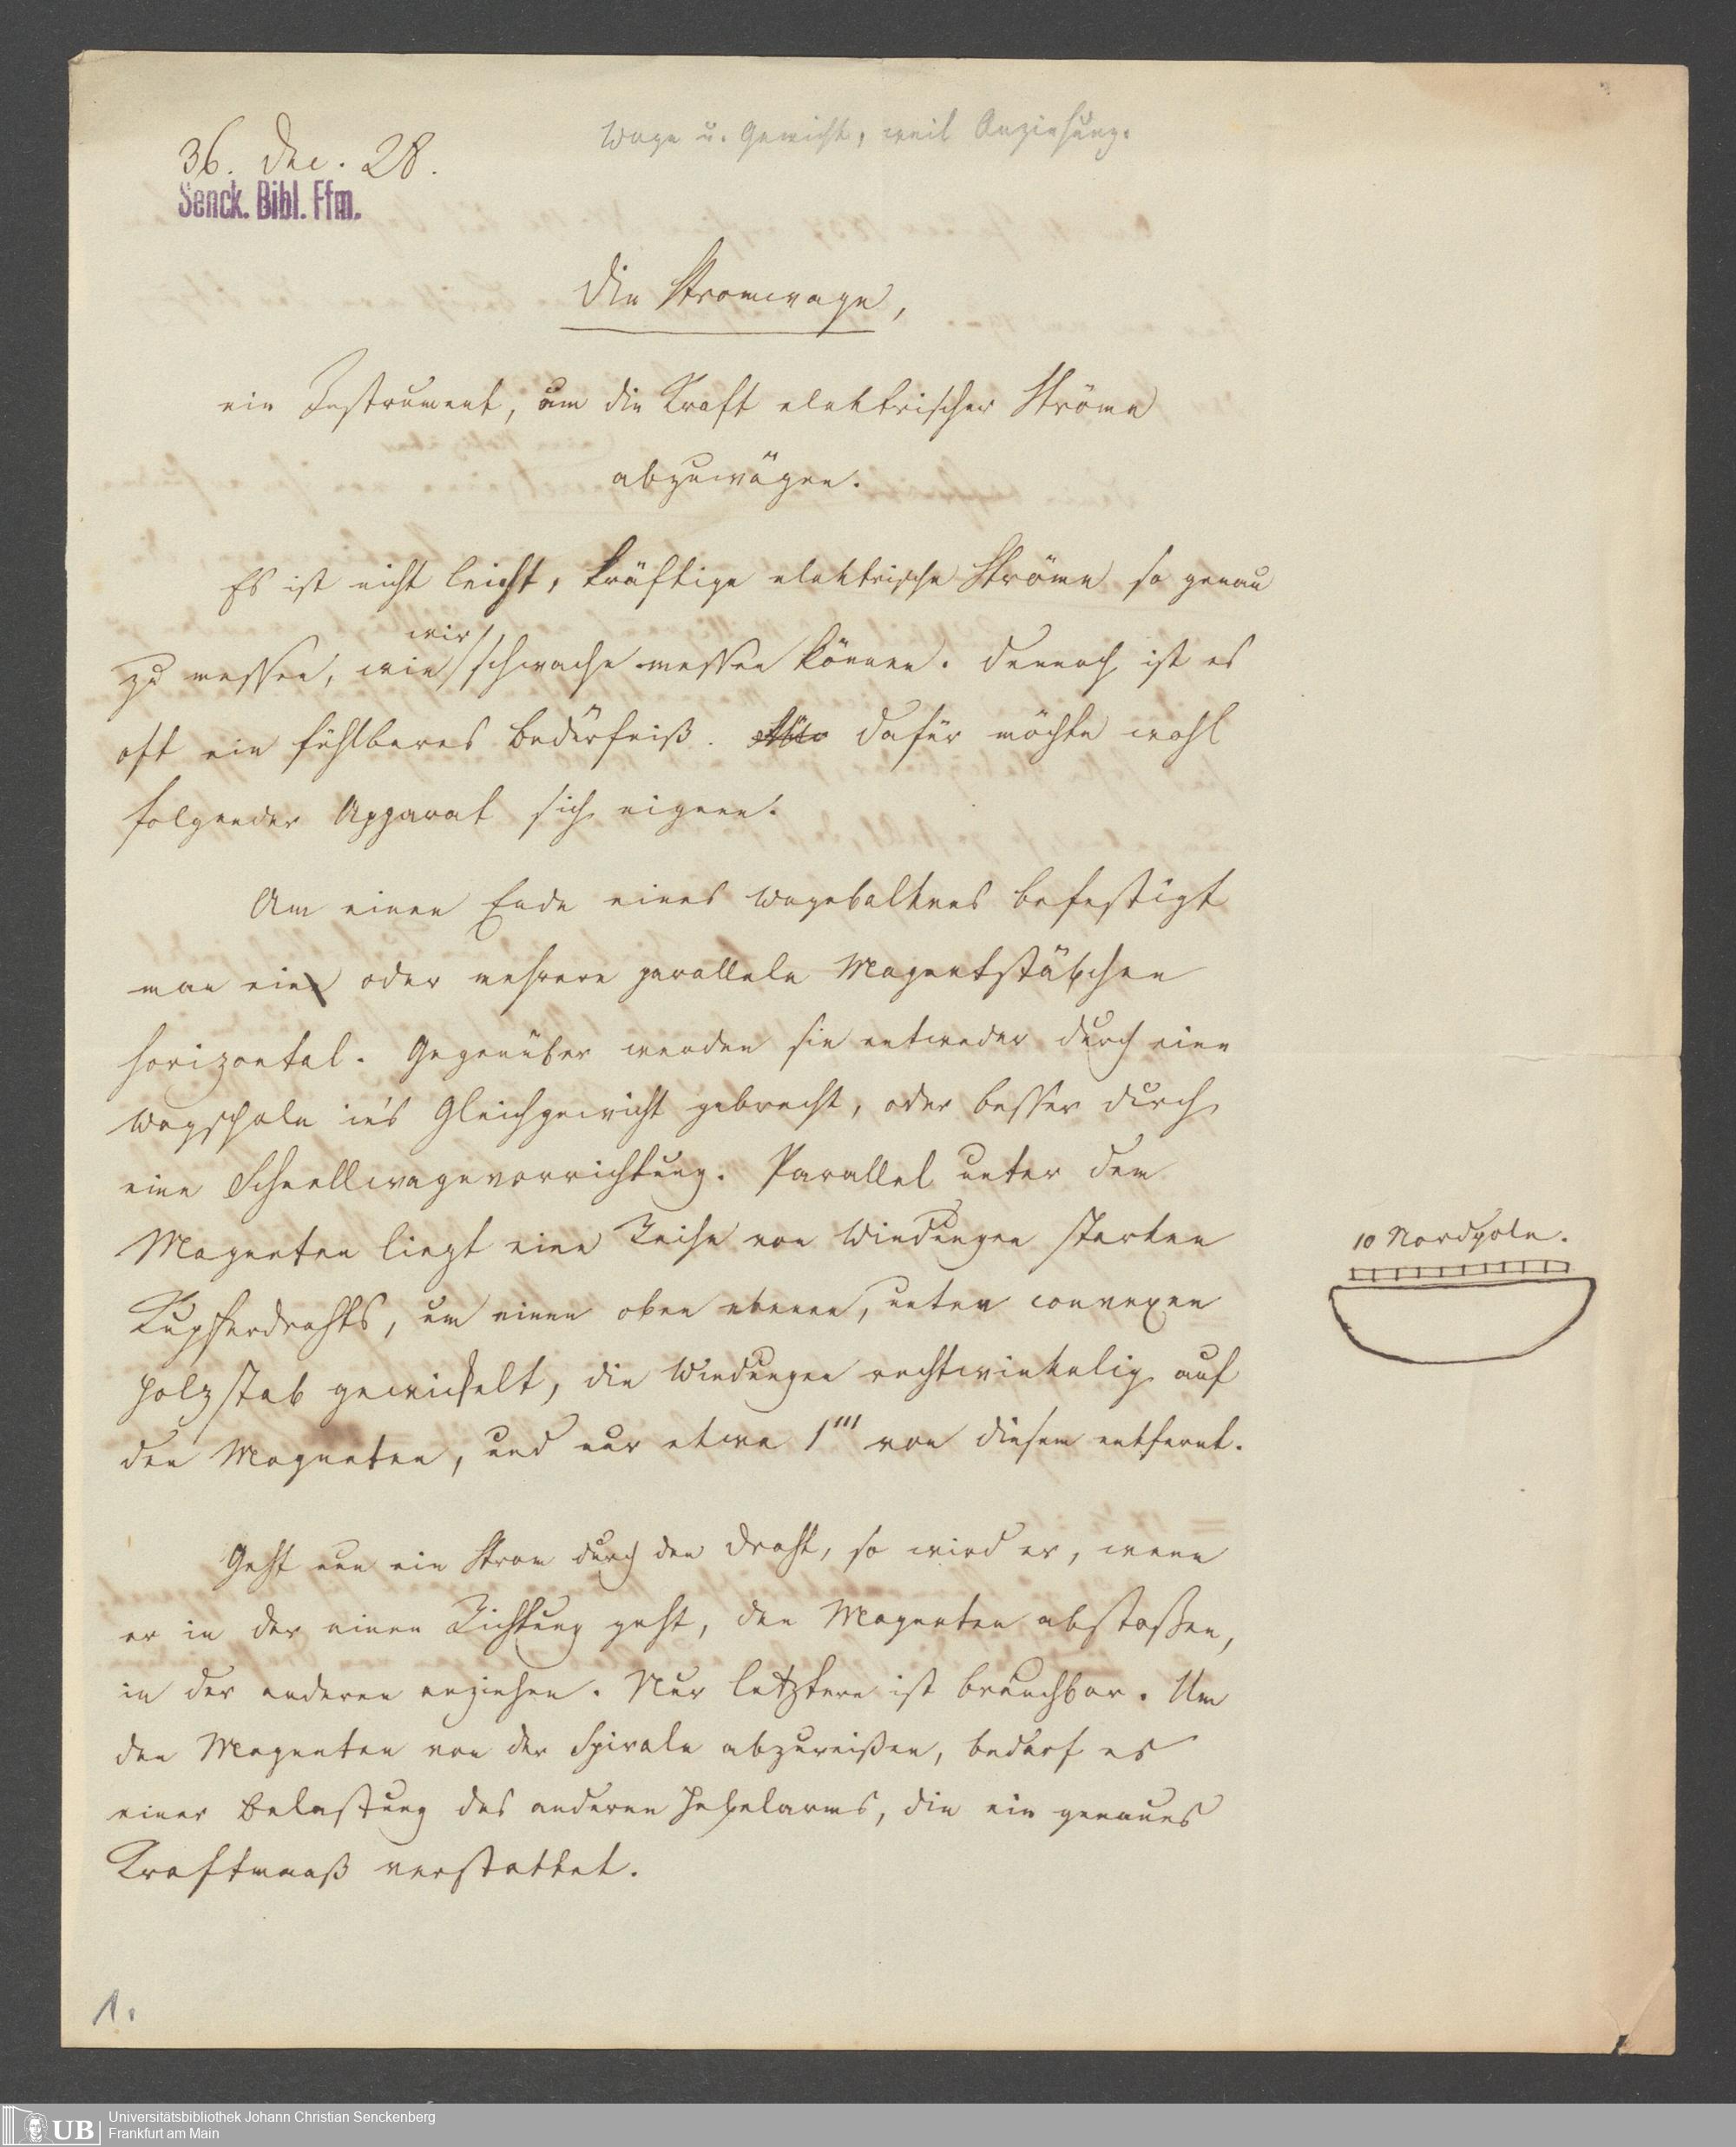 Wage u. Gewicht, weil Anziehung.
36. Dec. 28.
Senck. Bibl. Ffm.
Die Stromwage,
ein Instrument, um die Kraft elektrischer Ströme
abzuwägen.
Es ist nicht leicht, kräftige elektrische Ströme so genau
zu messen, wie wir schwache messen können. Dennoch ist es
oft ein fühlbares Bedürfniß. Dafür möchte wohl
folgender Apparat sich eignen.
Am einen Ende eines Wagebalkens befestigt
man ein oder mehrere parallele Magnetstäbchen
horizontal. Gegenüber werden sie entweder durch eine
Wagschale in's Gleichgewicht gebracht, oder besser durch
eine Schnellwagevorrichtung. Parallel unter den
Magneten liegt eine Reihe von Windungen starken
Kupferdrahts, um einen oben ebenen, unten convexen
Holzstab gewickelt, die Windungen rechtwinkelig auf
den Magneten, und nur etwa 1''' von diesem entfernt.
10 Nordpole.
Geht nun ein Strom durch den Draht, so wird er, wenn
er in der einen Richtung geht, den Magneten abstoßen,
in der anderen anziehen. Nur letztere ist brauchbar. Um
den Magneten von der Spirale abzureißen, bedarf es
einer Belastung des anderen Hebelarms, die ein genaues
Kraftmaaß verstattet.
1.
UB
Universitätsbibliothek Johann Christian Senckenberg
Frankfurt am Main